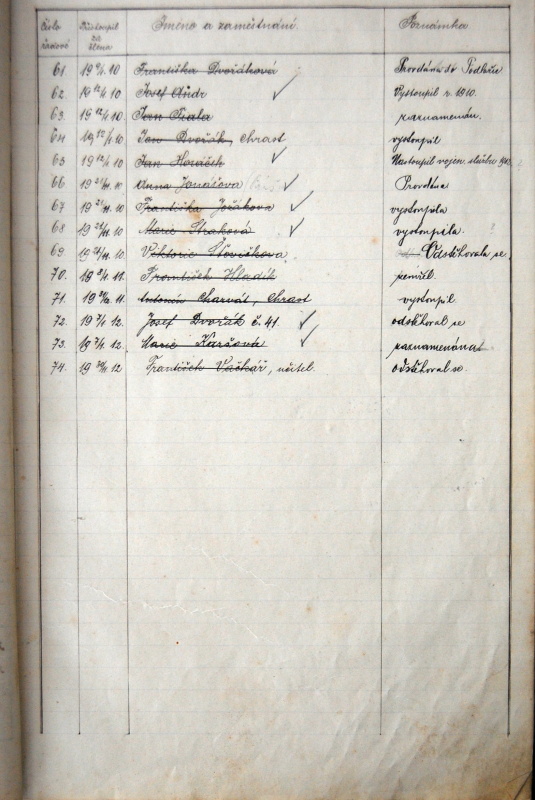 Číslo řadové Přistoupil za člena Jméno a zaměstnání. Poznámka.
61. Františka Dvořáková Provdána do Podhůře
62. 19 12/1 10 Josef Andr Vystoupil r. 1910.
63. 19 12/1 10. Jan Fiala zaznamenán.
64. 19 12/1 10 Jan Dvořák, Chrast vystoupil
65 19 12/1 10 Jan Horáček Nastoupil vojen. službu
66. Anna Jonášova Provdána
67 Františka vystoupila
68 Marie Straková vystoupila.
69. Viktorie Nováčkova Odstěhovala se.
70. František Hladík zemřel.
71. Antonín Charvát, Chrast vystoupil
72. 19 7/1 12. Josef Dvořák č. 41 odstěhoval se
73. 19 7/1 12. Marie Karšová zaznamenána
74. František Vaškář, učitel. odstěhoval se.